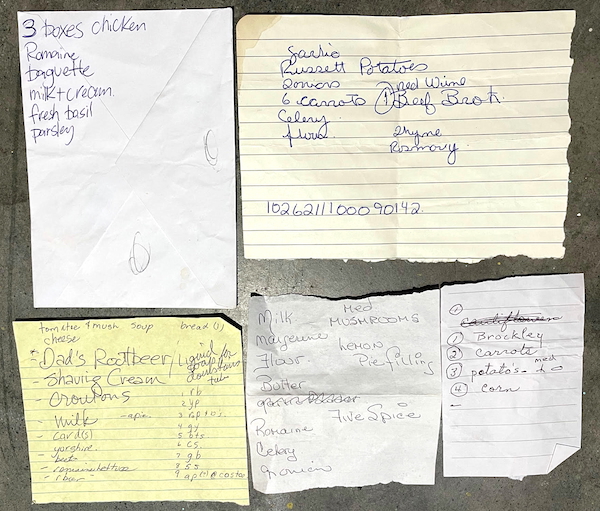 3 boxes chicken
Romaine
baguette
milk + cream
fresh basil
parsley
Garlic
Russett Potatoes
onions red Wine
6 carrots 1 Beef Broth
Celery
flour Thyme
Rosmary
1026211100090142
tomatoe & mush soup bread (1)
cheese
- Dad's Rootbeer / Liquid
- Shaving Cream
- croutons
- milk
- card(s)
- yorshire
- beets
- romaine lettuce
1 rb
2 yp
4 gy
5 bts
6 cs
7 gb
8 ss
Milk Med
MUSHROOMS
Flour LEMON
Pie filling
Butter
Five Spice
Romaine
Celery
1 Brockley
2 Carrots
3 potato's - med
4 corn